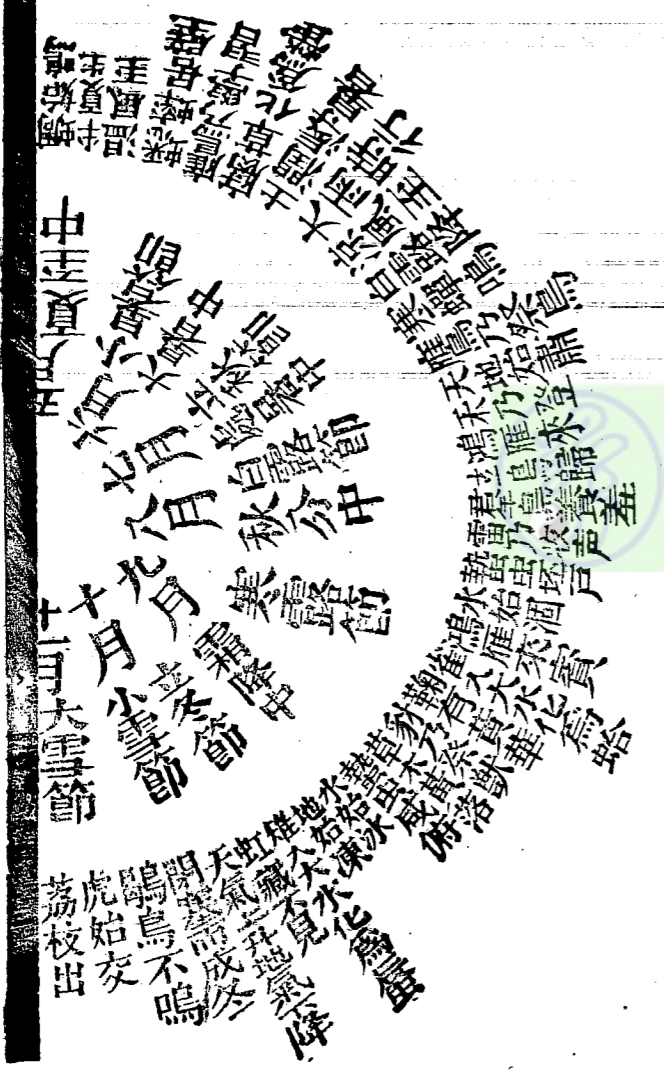 五月夏至中
六月小暑節
大暑中
七月立秋節
處暑中
八月白露節
秋分中
九月寒露節
霜降中
十月立冬節
小雪節
十一月大雪節
蜩始鳴
半夏生
温風至
蟋蟀居壁
鷹乃學習
腐草化爲螢
土潤溽暑
大雨時行
涼風至
白露降
寒蟬鳴
鷹乃祭鳥
天地始肅
禾乃登
鴻雁來
玄鳥歸
羣鳥養羞
雷乃收声
蟄蟲坯戶
水始涸
鴻雁來賓
雀入大水化爲蛤
鞠有黄華
豺乃祭獸
草木黄落
蟄蟲咸俯
水始冰
地始凍
雉入大水化爲蜃
虹藏不見
天氣上升地氣下降
閉塞而成冬
鶡鳥不鳴
虎始交
荔枝出